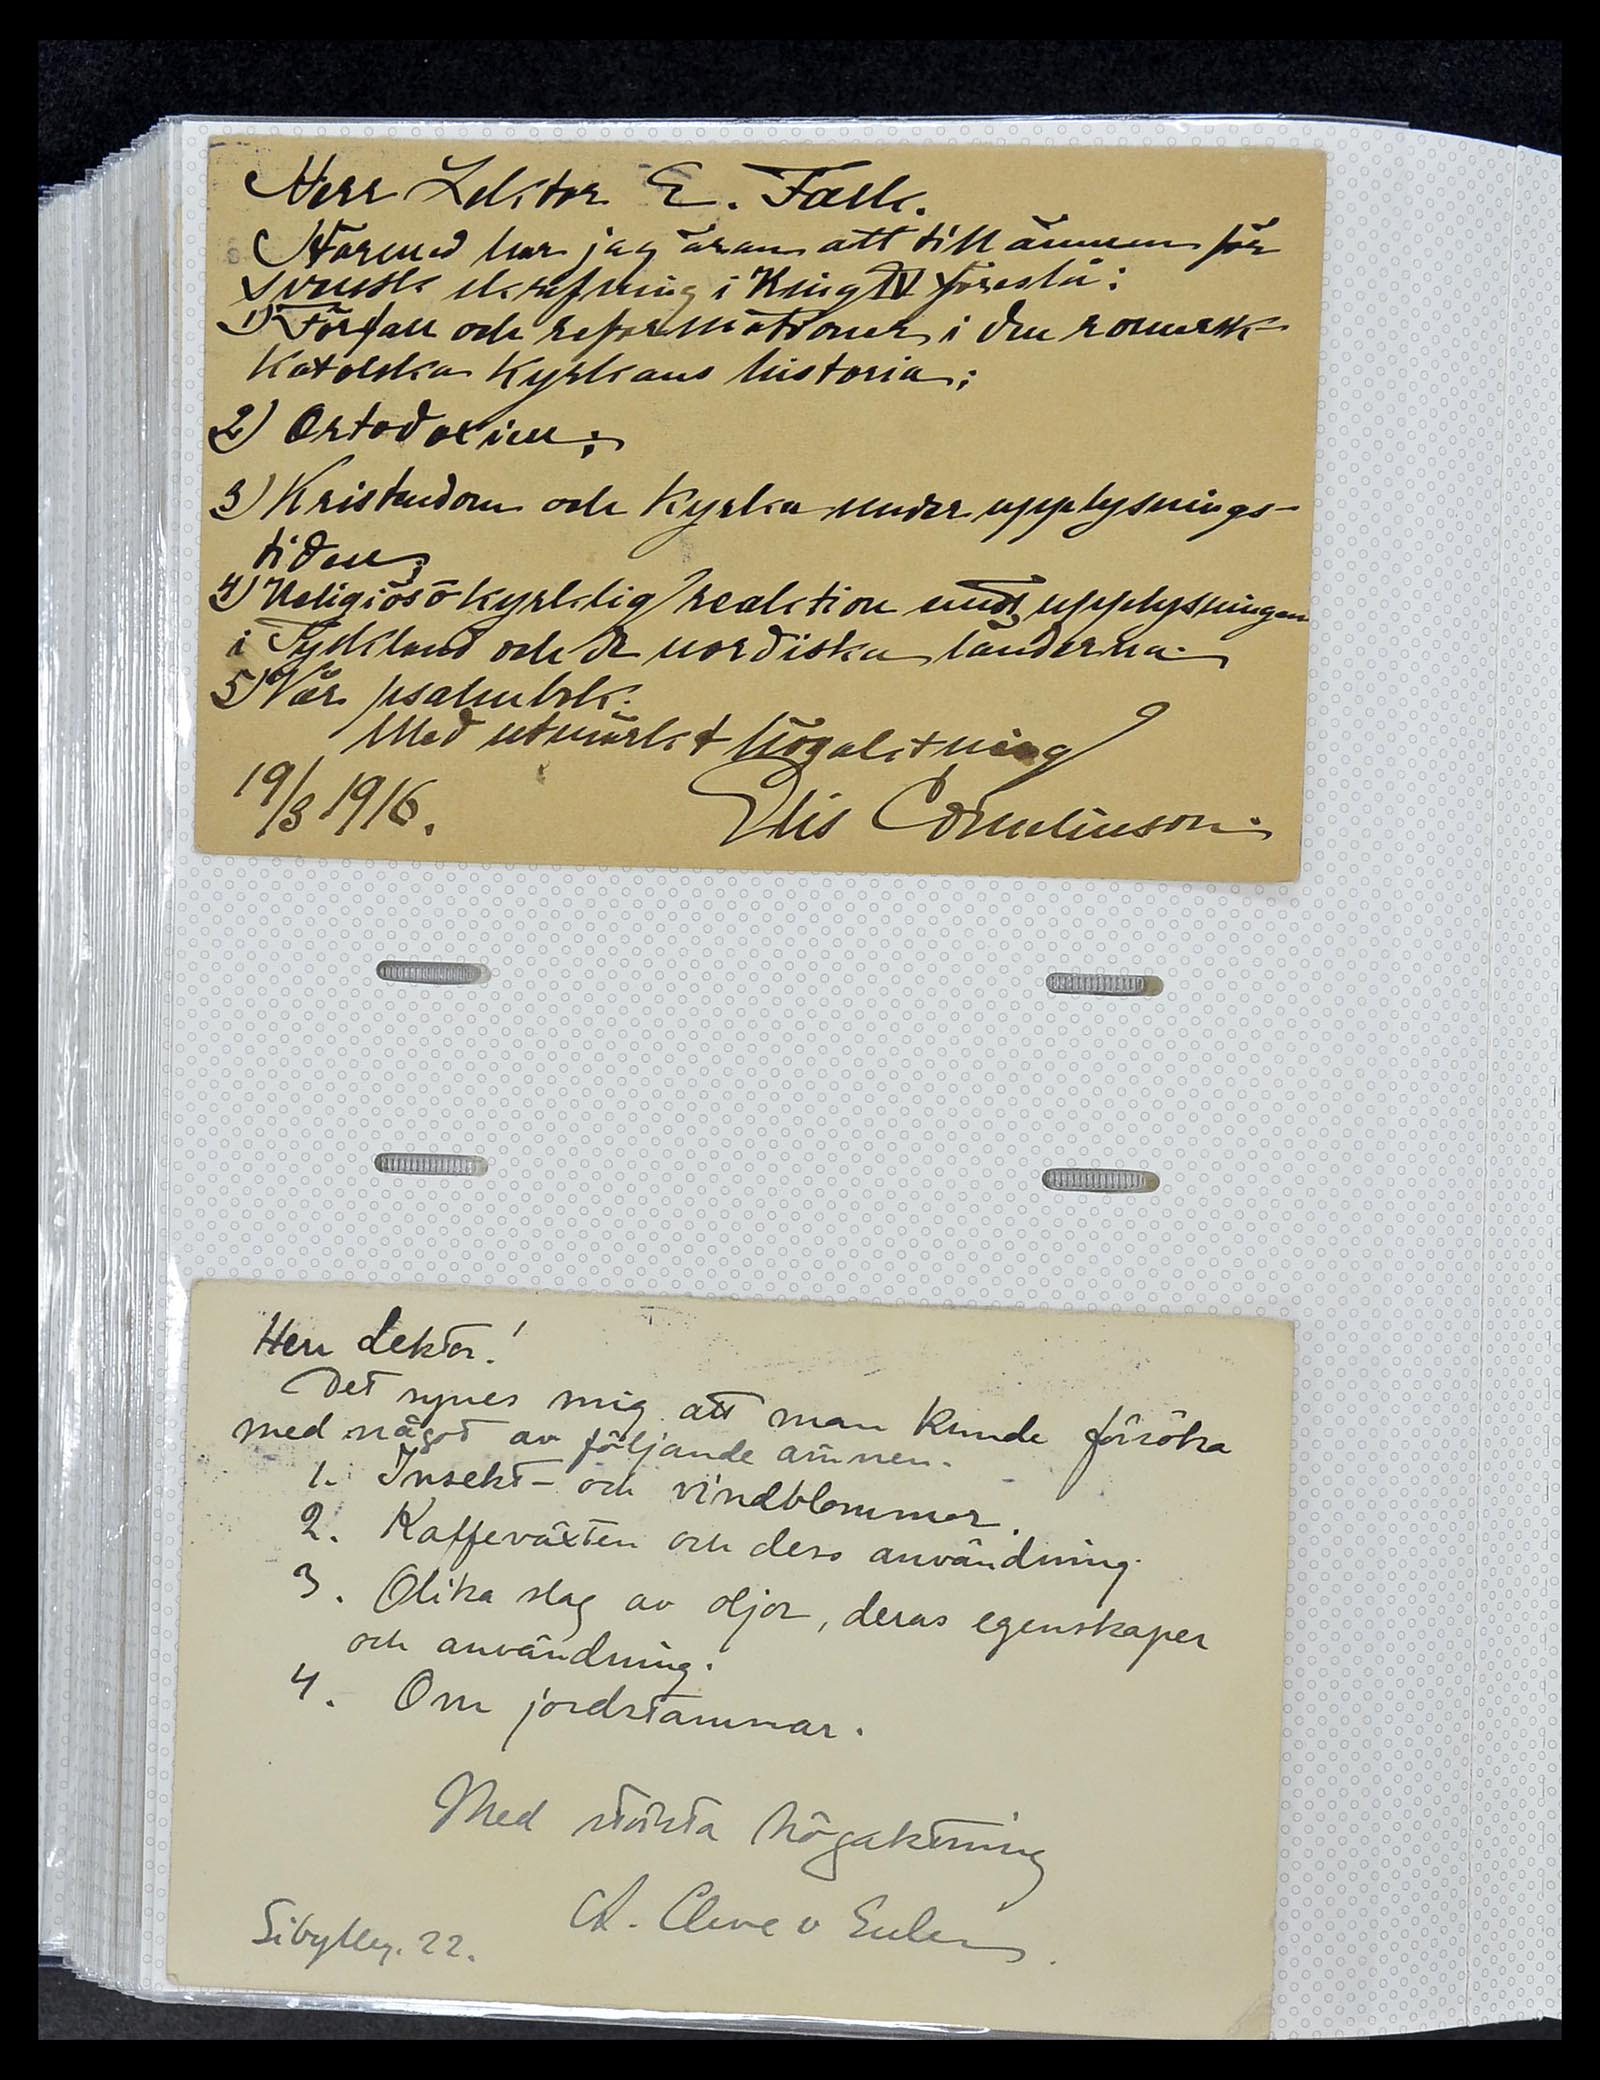 Herr Lektor E. Falk.
Härmed har jag äran att till ämnen för
svensk skrifning i Ring IV föreslå:
1) Förfall och reformationer i den romersk-
katolska kyrkans historia;
2) Ortodoxien;
3) Kristendom och kyrka under upplysnings-
tiden;
4) Religiös o kyrklig reaktion mot upplysningen
i Tyskland och de nordiska länderna.
5) Vår psalmbok.
Med utmärkt högaktning
19/3 1916.
Elis Cornelinson.
Herr Lektor!
Det synes mig att man kunde försöka
med något av följande ämnen.
1. Insekt- och vindblommor.
2. Kaffeväxten och dess användning.
3. Olika slag av oljor, deras egenskaper
och användning.
4. Om jordstammar.
Med största högaktning
A. Cleve v Euler.
Sibylleg. 22.